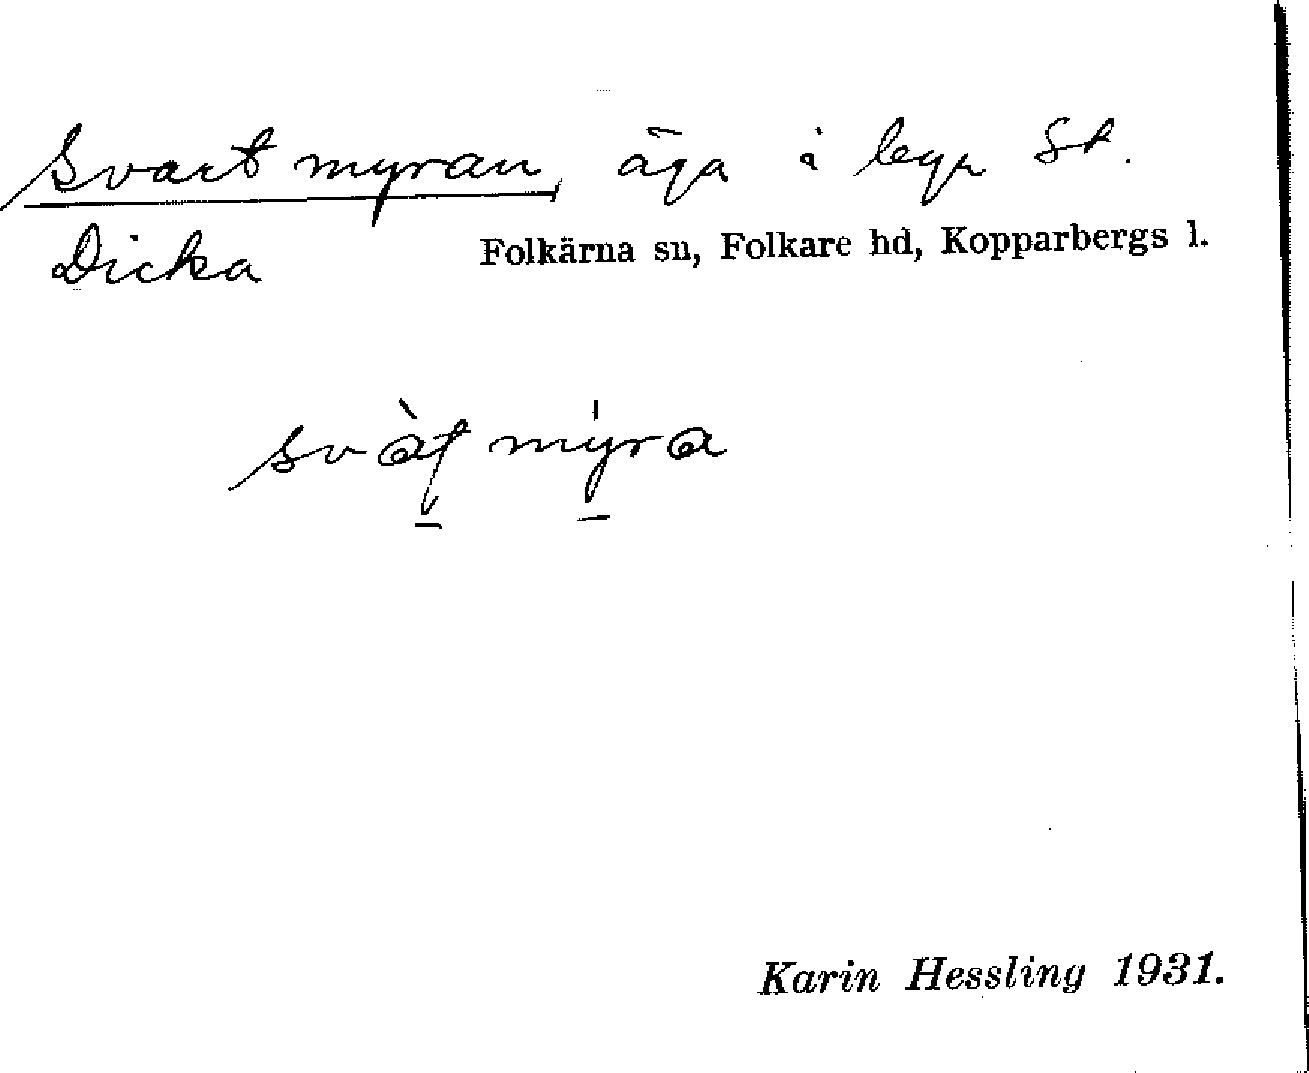 Svartmyran, äga i byn St.
Dicka
Folkärna sn, Folkare hd, Kopparbergs l.
Karin Hessling 1931.